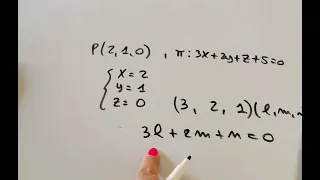 P(2,1,0) , π: 3x+2y+z+5=0
{ x=2
y=1
z=0 (3, 2, 1)(l,m,
3l+2m+n=0